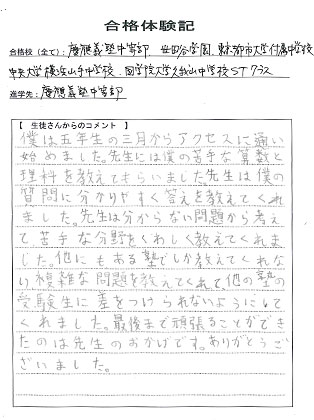 合格体験記
合格校（全て）：慶應義塾中等部　世田谷学園　東京都市大学付属中学校
中央大学横浜山手中学校　國學院大學久我山中学校STクラス
進学先：慶應義塾中等部
【　生徒さんからのコメント　】
僕は五年生の三月からアクセスに通い
始めました。先生には僕の苦手な算数と
理科を教えてもらいました。先生は僕の
質問に分かりやすく答えを教えてくれ
ました。先生は分からない問題から考え
て苦手な分野をくわしく教えてくれま
した。他にもある塾でしか教えてくれな
い複雑な問題を教えてくれて、他の塾の
受験生に差をつけられないようにして
くれました。最後まで頑張ることができ
たのは先生のおかげです。ありがとうご
ざいました。